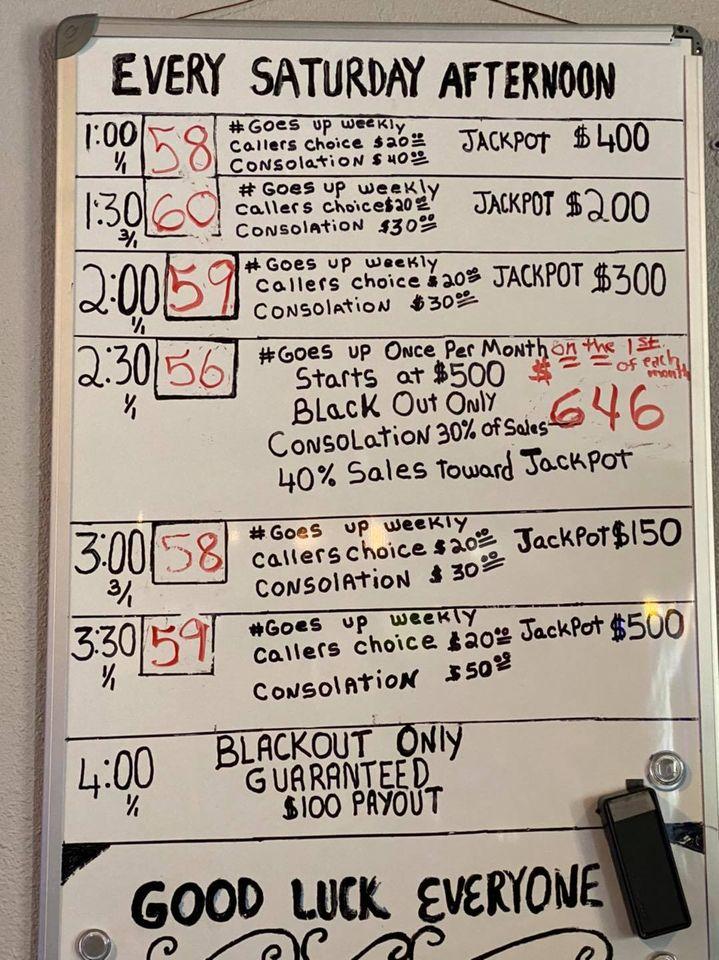 EVERY SATURDAY AFTERNOON
1:00 58 #Goes up weekly
1/1 Callers choice $20.00 JACKPOT $400
Consolation $40.00
1:30 60 # Goes up weekly
3/1 Callers choice $20.00 JACKPOT $200
Consolation $30.00
2:00 59 #Goes up weekly
1/1 Callers choice $20.00 JACKPOT $300
Consolation $30.00
2:30 56 #Goes up Once Per Month on the 1st
1/1 Starts at $500 $ of each month
Black Out Only 646
Consolation 30% of Sales
40% Sales Toward Jackpot
3:00 58 #Goes up weekly
3/1 Callers choice $20.00 Jackpot $150
Consolation $30.00
3:30 59 #Goes up weekly
1/1 Callers choice $20.00 Jackpot $500
Consolation $50.00
4:00 BLACKOUT ONLY
1/1 GUARANTEED
$100 PAYOUT
GOOD LUCK EVERYONE